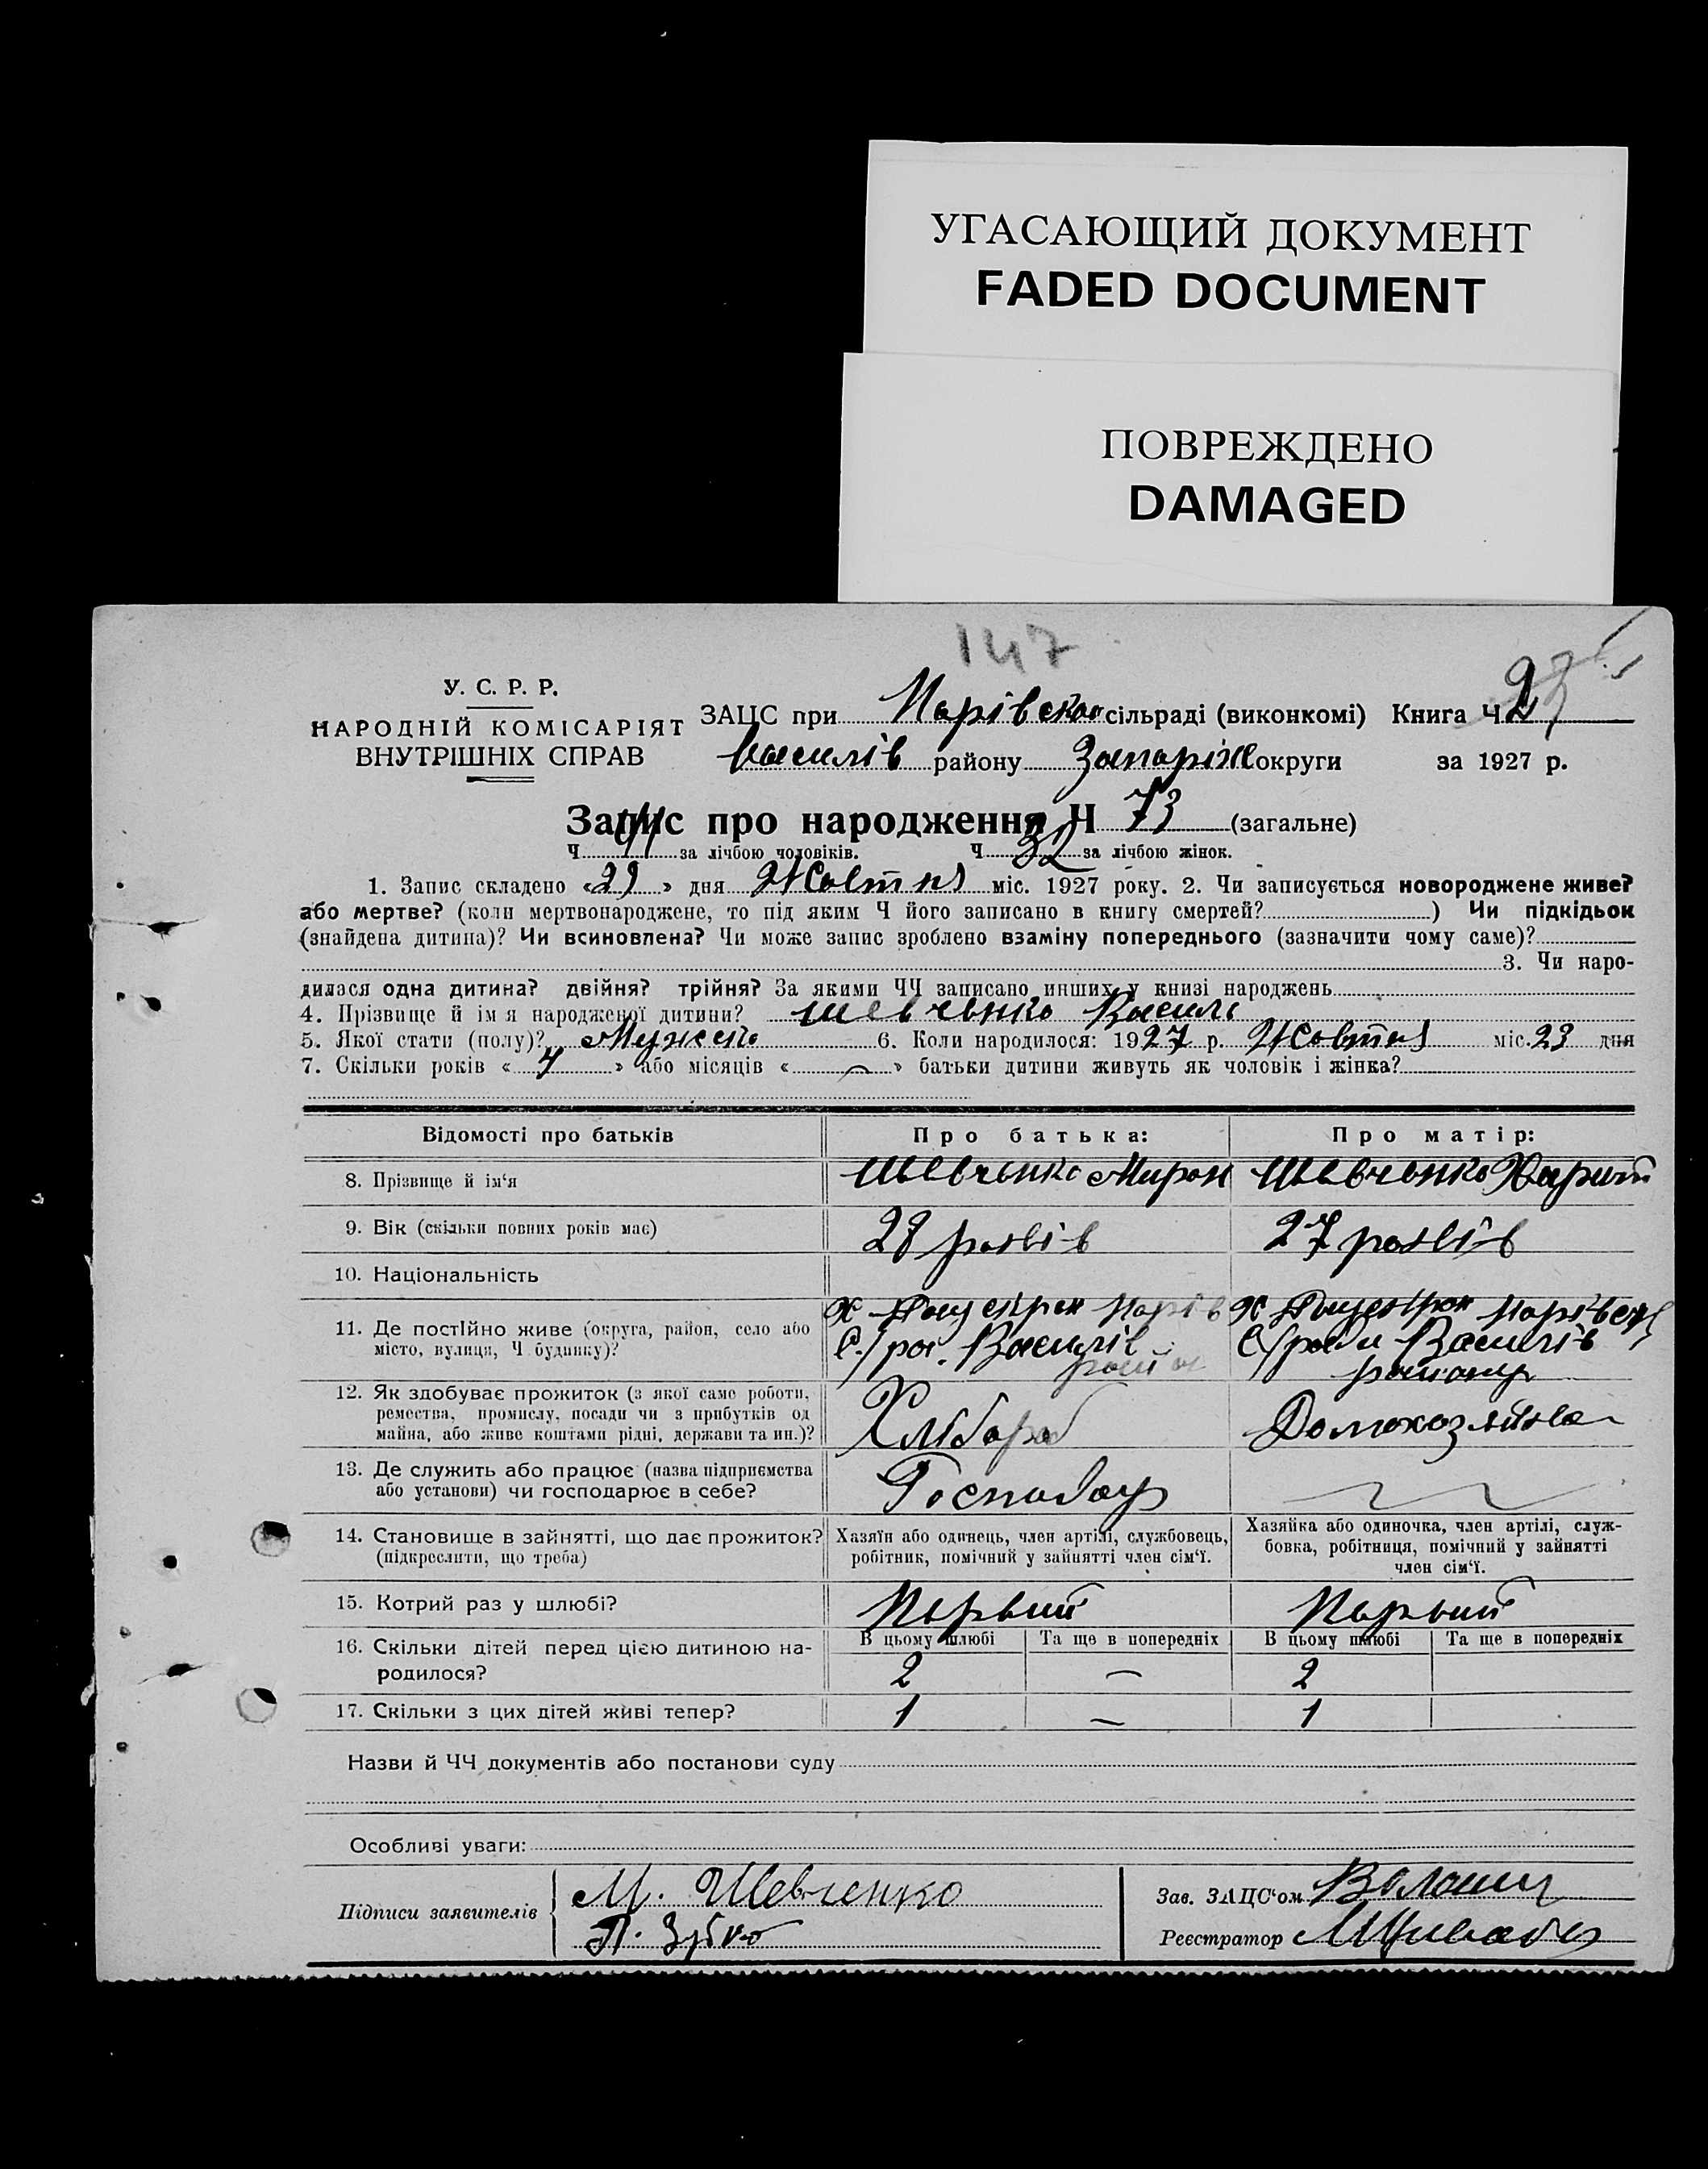 УГАСАЮЩИЙ ДОКУМЕНТ
FADED DOCUMENT
ПОВРЕЖДЕНО
DAMAGED
147
У. С. Р. Р.
НАРОДНІЙ КОМІСАРІЯТ
ВНУТРІШНІХ СПРАВ
ЗАЦС при сільраді (виконкомі) Книга Ч 2
Василів району Запоріж округи за 1927 р.
Запис про народження Ч 73 (загальне)
Ч 41 за лічбою чоловіків. Ч 32 за лічбою жінок.
1. Запис складено «29» дня Жовтня міс. 1927 року. 2. Чи записується новороджене живе?
або мертве? (коли мертвонароджене, то під яким Ч його записано в книгу смертей? ) Чи підкідьок
(знайдена дитина)? Чи всиновлена? Чи може запис зроблено взаміну попереднього (зазначити чому саме)?
3. Чи наро-
дилася одна дитина? двійня? трійня? За якими ЧЧ записано инших у книзі народжень
4. Прізвище й ім я народженої дитини? Шевченко Василь
5. Якої стати (полу)? 6. Коли народилося: 1927 р. Жовтня міс. 23 дня
7. Скільки років «4» або місяців «—» батьки дитини живуть як чоловік і жінка?
Відомості про батьків Про батька: Про матір:
8. Прізвище й ім'я Шевченко Мирон Шевченко
9. Вік (скільки повних років має) 28 років 27 років
10. Національність
11. Де постійно живе (округа, район, село або
місто, вулиця, Ч будинку)?
Х С./рог. Василів Х Василів
12. Як здобуває прожиток (з якої само роботи,
ремества, промислу, посади чи з прибутків од
майна, або живе коштами рідні, держави та ин.)?
Хлібороб Домохозяйка
13. Де служить або працює (назва підприємства
або установи) чи господарює в себе?
Господар
14. Становище в зайнятті, що дає прожиток?
(підкреслити, що треба)
Хазяїн або одинець, член артілі, службовець,
робітник, помічний у зайнятті член сім'ї.
Хазяйка або одиночка, член артілі, служ-
бовка, робітниця, помічний у зайнятті
член сім'ї.
15. Котрий раз у шлюбі? Первий Первий
16. Скільки дітей перед цією дитиною на-
родилося?
В цьому шлюбі Та ще в попередніх В цьому шлюбі Та ще в попередніх
2 — 2
17. Скільки з цих дітей живі тепер? 1 — 1
Назви й ЧЧ документів або постанови суду
Особливі уваги:
Підписи заявителів М. Шевченко
П. Зубко
Зав. ЗАЦС'ом Волошин
Реєстратор